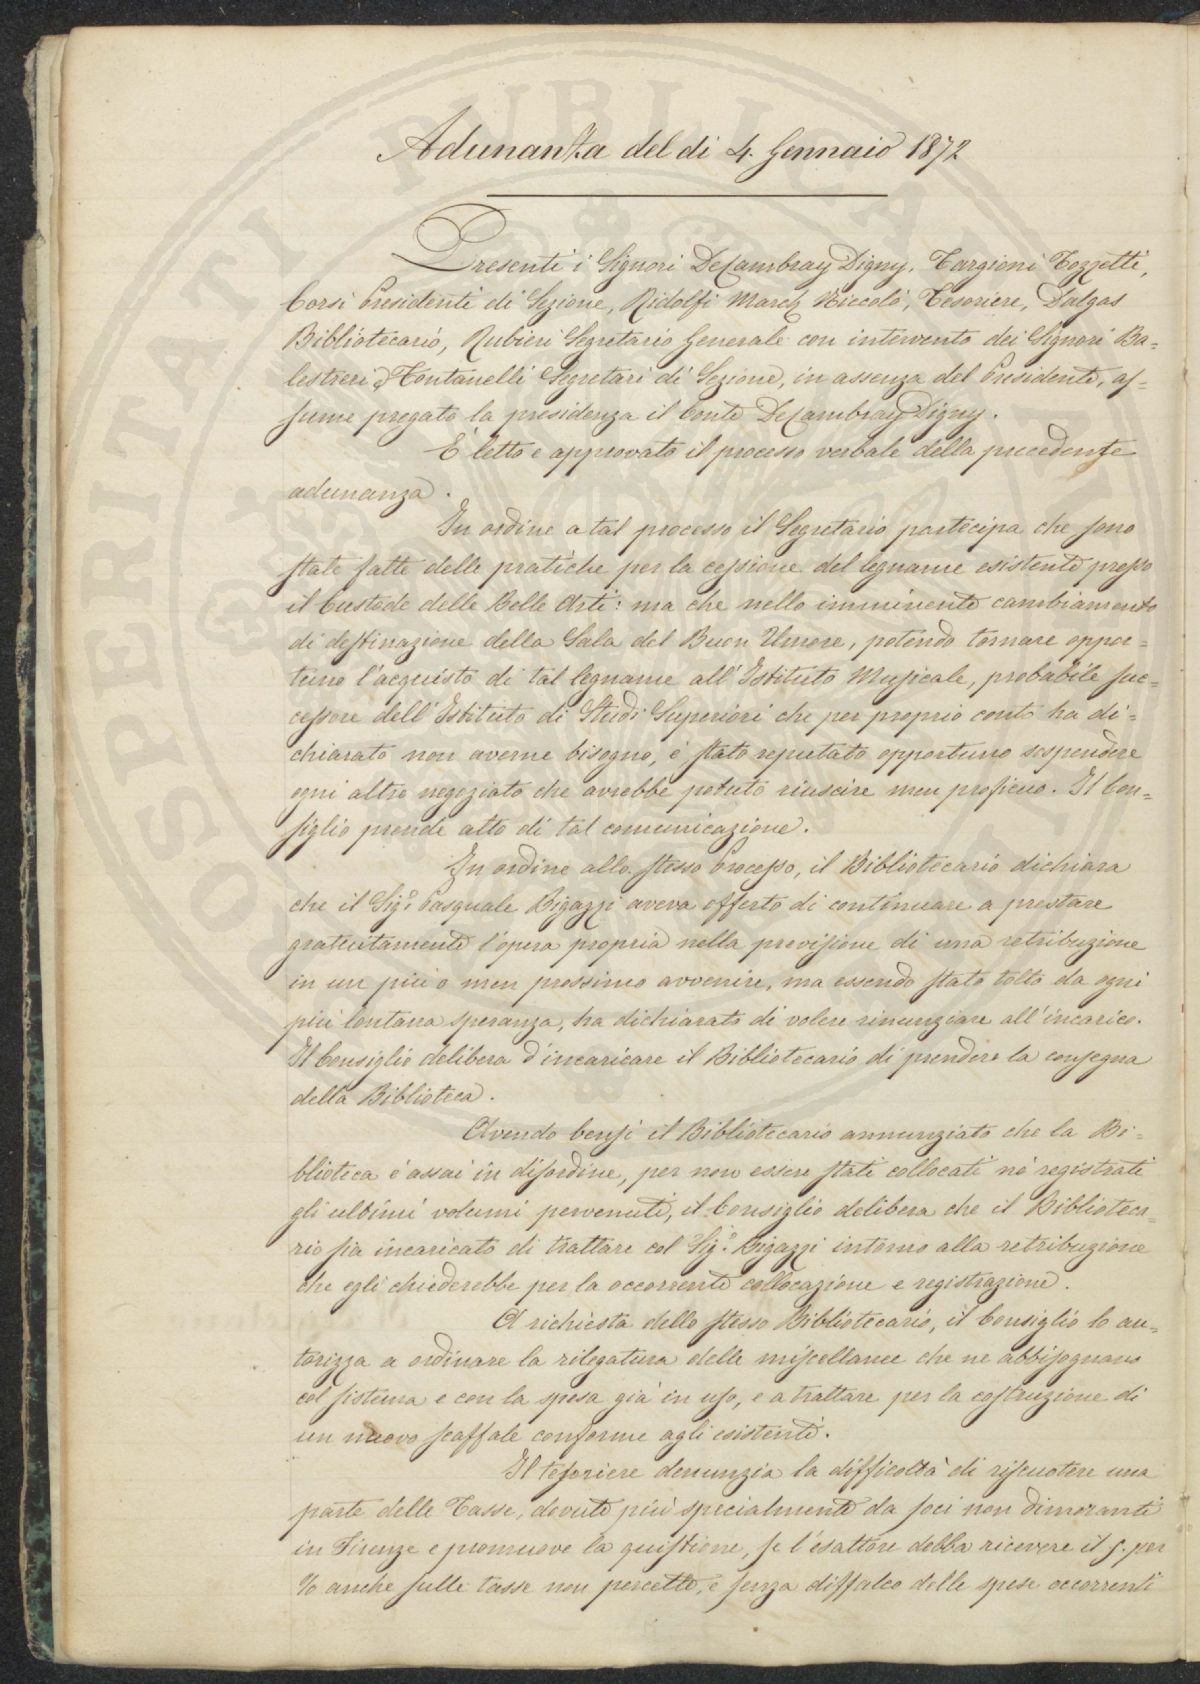 Adunanza del dì 4. Gennaio 1872
Presenti i Signori DeCambray Digny, Targioni Tozzetti,
Corsi Presidenti di Sezione, Ridolfi March Niccolò, Tesoriere, Dalgas
Bibliotecario, Rubieri Segretario Generale con intervento dei Signori Ba=
lestreri e Fontanelli Segretari di Sezione, in assenza del Presidente, as=
sume pregato la presidenza il Conte DeCambray Digny.
È letto e approvato il processo verbale della precedente
adunanza.
In ordine a tal processo il Segretario partecipa che sono
state fatte delle pratiche per la cessione del legname esistente presso
il Custode delle Belle Arti: ma che nello imminente cambiamento
di destinazione della Sala del Buon Umore, potendo tornare oppor=
tuno l'acquisto di tal legname all'Istituto Musicale, probabile suc=
cessore dell'Istituto di Studi Superiori che per proprio conto ha di=
chiarato non averne bisogno, è stato reputato opportuno sospendere
ogni altro negoziato che avrebbe potuto riuscire men proficuo. Il Con=
siglio prende atto di tal comunicazione.
In ordine allo stesso Processo, il Bibliotecario dichiara
che il Sigr. Pasquale Bigazzi aveva offerto di continuare a prestare
gratuitamente l'opera propria nella previsione di una retribuzione
in un più o men prossimo avvenire, ma essendo stato tolto da ogni
più lontana speranza, ha dichiarato di volere rinunziare all'incarico.
Il Consiglio delibera d'incaricare il Bibliotecario di prendere la consegna
della Biblioteca.
Avendo bensì il Bibliotecario annunziato che la Bi=
blioteca è assai in disordine, per non essere stati collocati nè registrati
gli ultimi volumi pervenuti, il Consiglio delibera che il Biblioteca=
rio sia incaricato di trattare col Sigr. Bigazzi intorno alla retribuzione
che egli chiederebbe per la occorrente collocazione e registrazione.
A richiesta dello stesso Bibliotecario, il Consiglio lo au=
torizza a ordinare la rilegatura delle miscellanee che ne abbisognano
col sistema e con la spesa già in uso, e a trattare per la costruzione di
un nuovo scaffale conforme agli esistenti.
Il tesoriere denunzia la difficoltà di riscuotere una
parte delle Tasse, dovute più specialmente da soci non dimoranti
in Firenze e promuove la quistione, se l'esattore debba ricevere il 5. per
% anche sulle tasse non percette, e senza diffalco delle spese occorrenti
SOPERITATI PUBLICAE